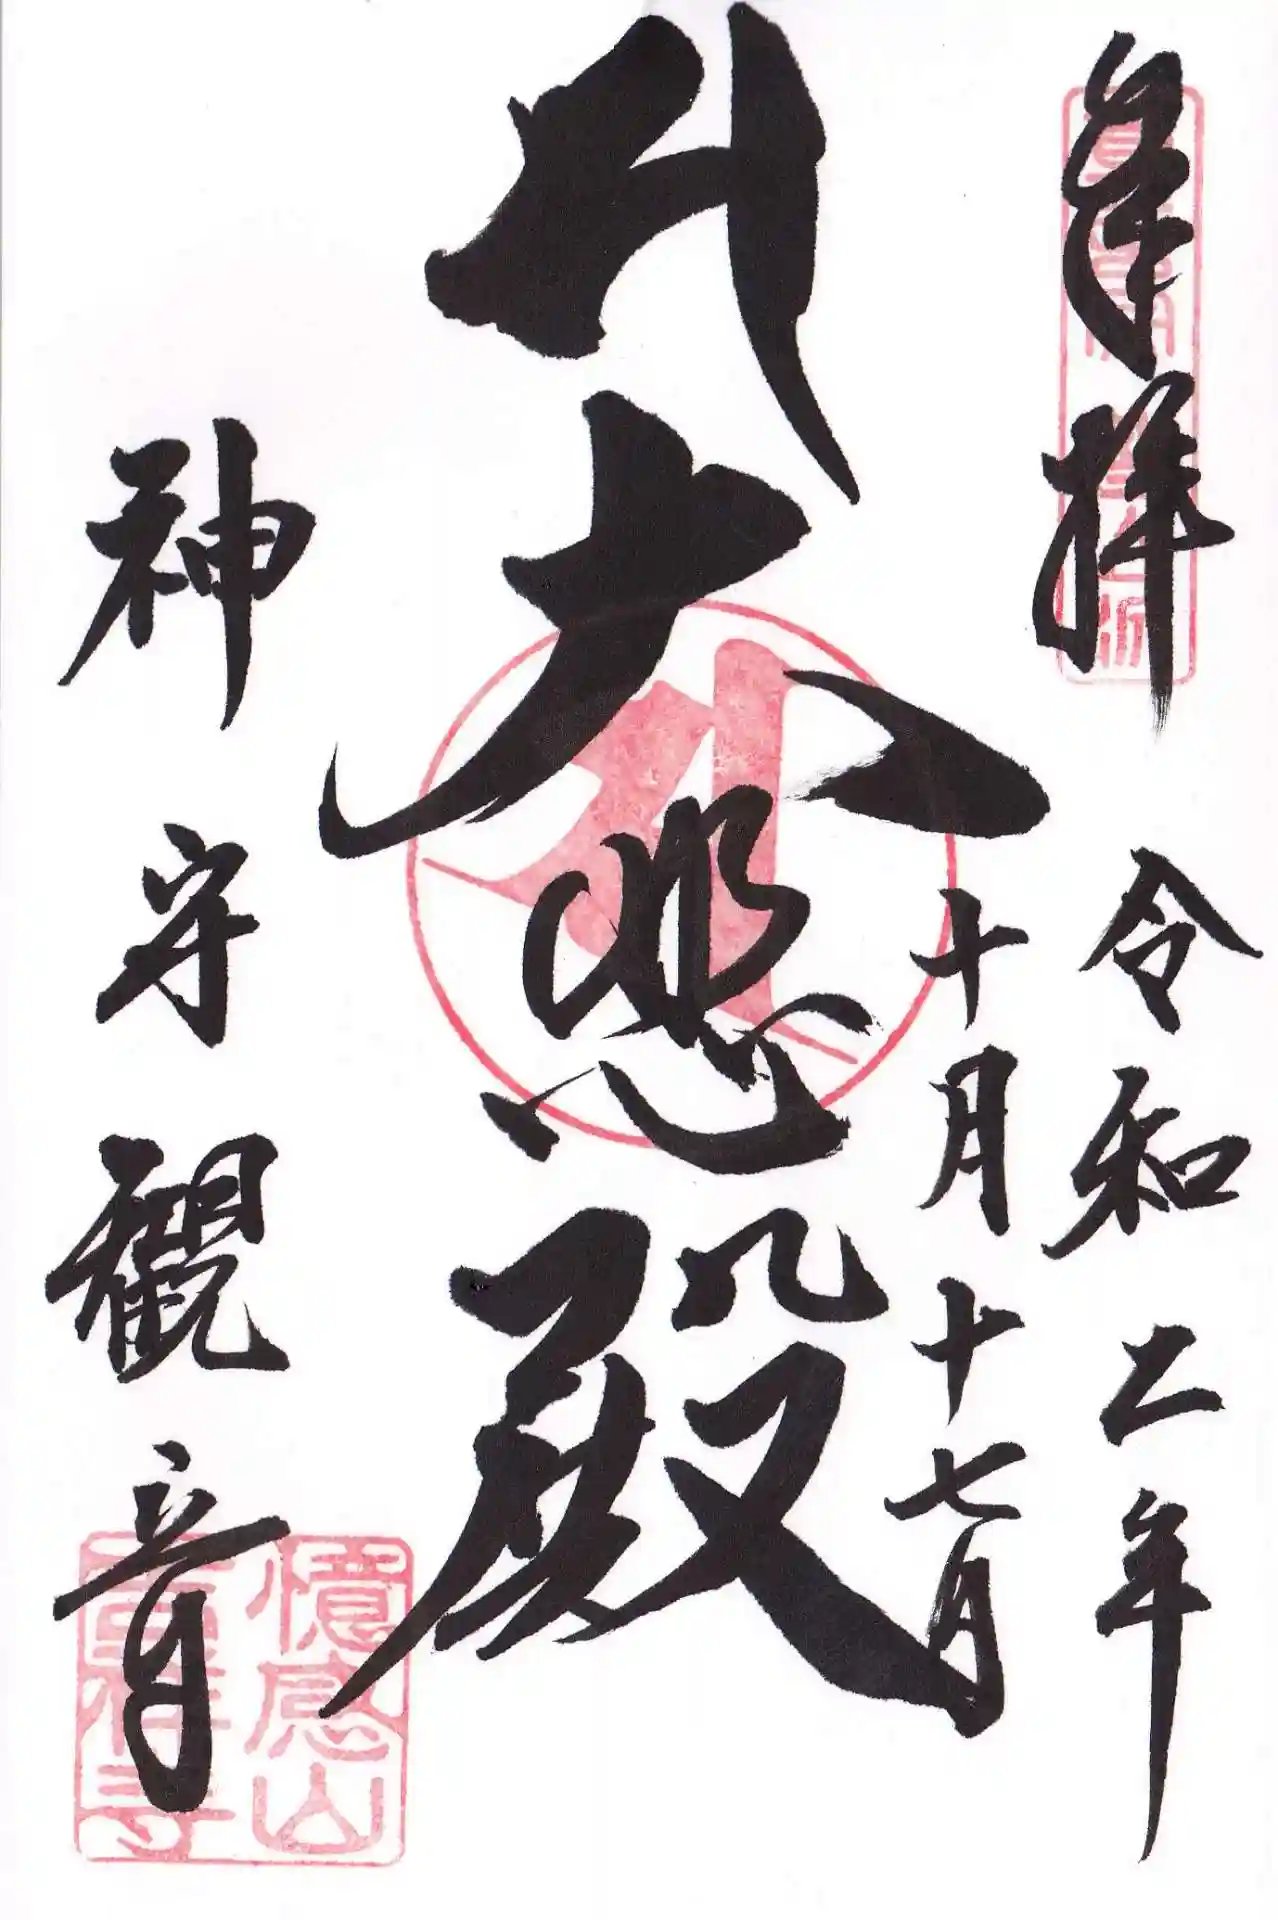 奉拝
令和二年
十月十七日
𑖭
大悲殿
神守觀音
憶感山